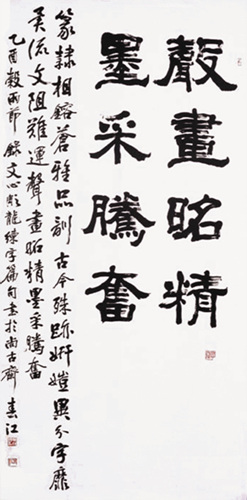 聲畫昭精
墨采騰奮
篆隸相鎔蒼雅品訓古今殊跡妍媸異分字靡
異流文阻難運聲畫昭精墨采騰奮
乙酉穀雨節錄文心雕龍練字篇句書於尚古齋春江